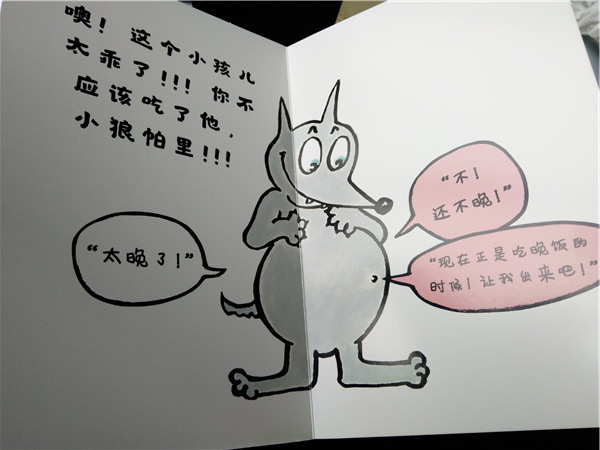 噢！这个小孩儿
太乖了!!! 你不
应该吃了他，
小狼帕里!!!
“太晚了！”
“不！
还不晚！”
“现在正是吃晚饭的
时候！让我出来吧！”